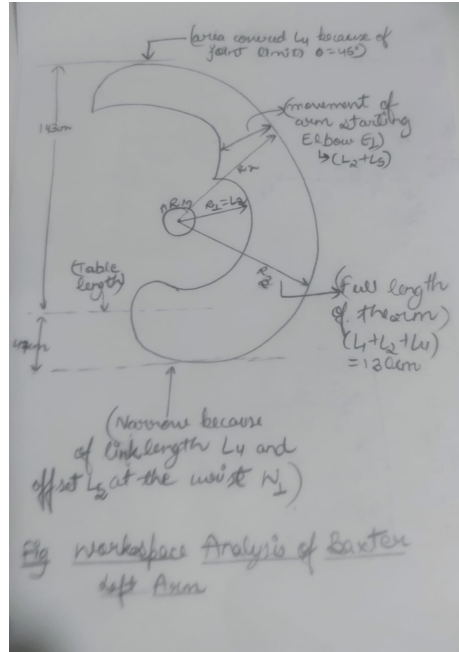 (area covered L4 because of
joint limits θ=45°)
(movement of
arm starting
Elbow E1)
↳(L2+L3)
143cm
R1=L2
(Table
length)
(Full length
of the arm)
(L1+L2+L4)
=120cm
(Narrow because
of link length L4 and
offset L5 at the wrist W1)
Fig Workspace Analysis of Baxter
Left Arm